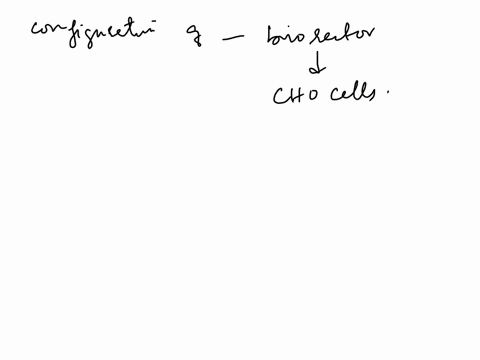 configuration of — bioreactor
↓
CHO cells.